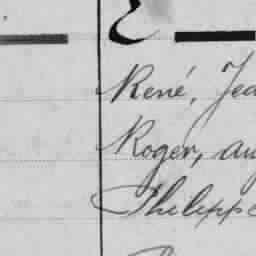 René, Jea
Roger, au
Philippe